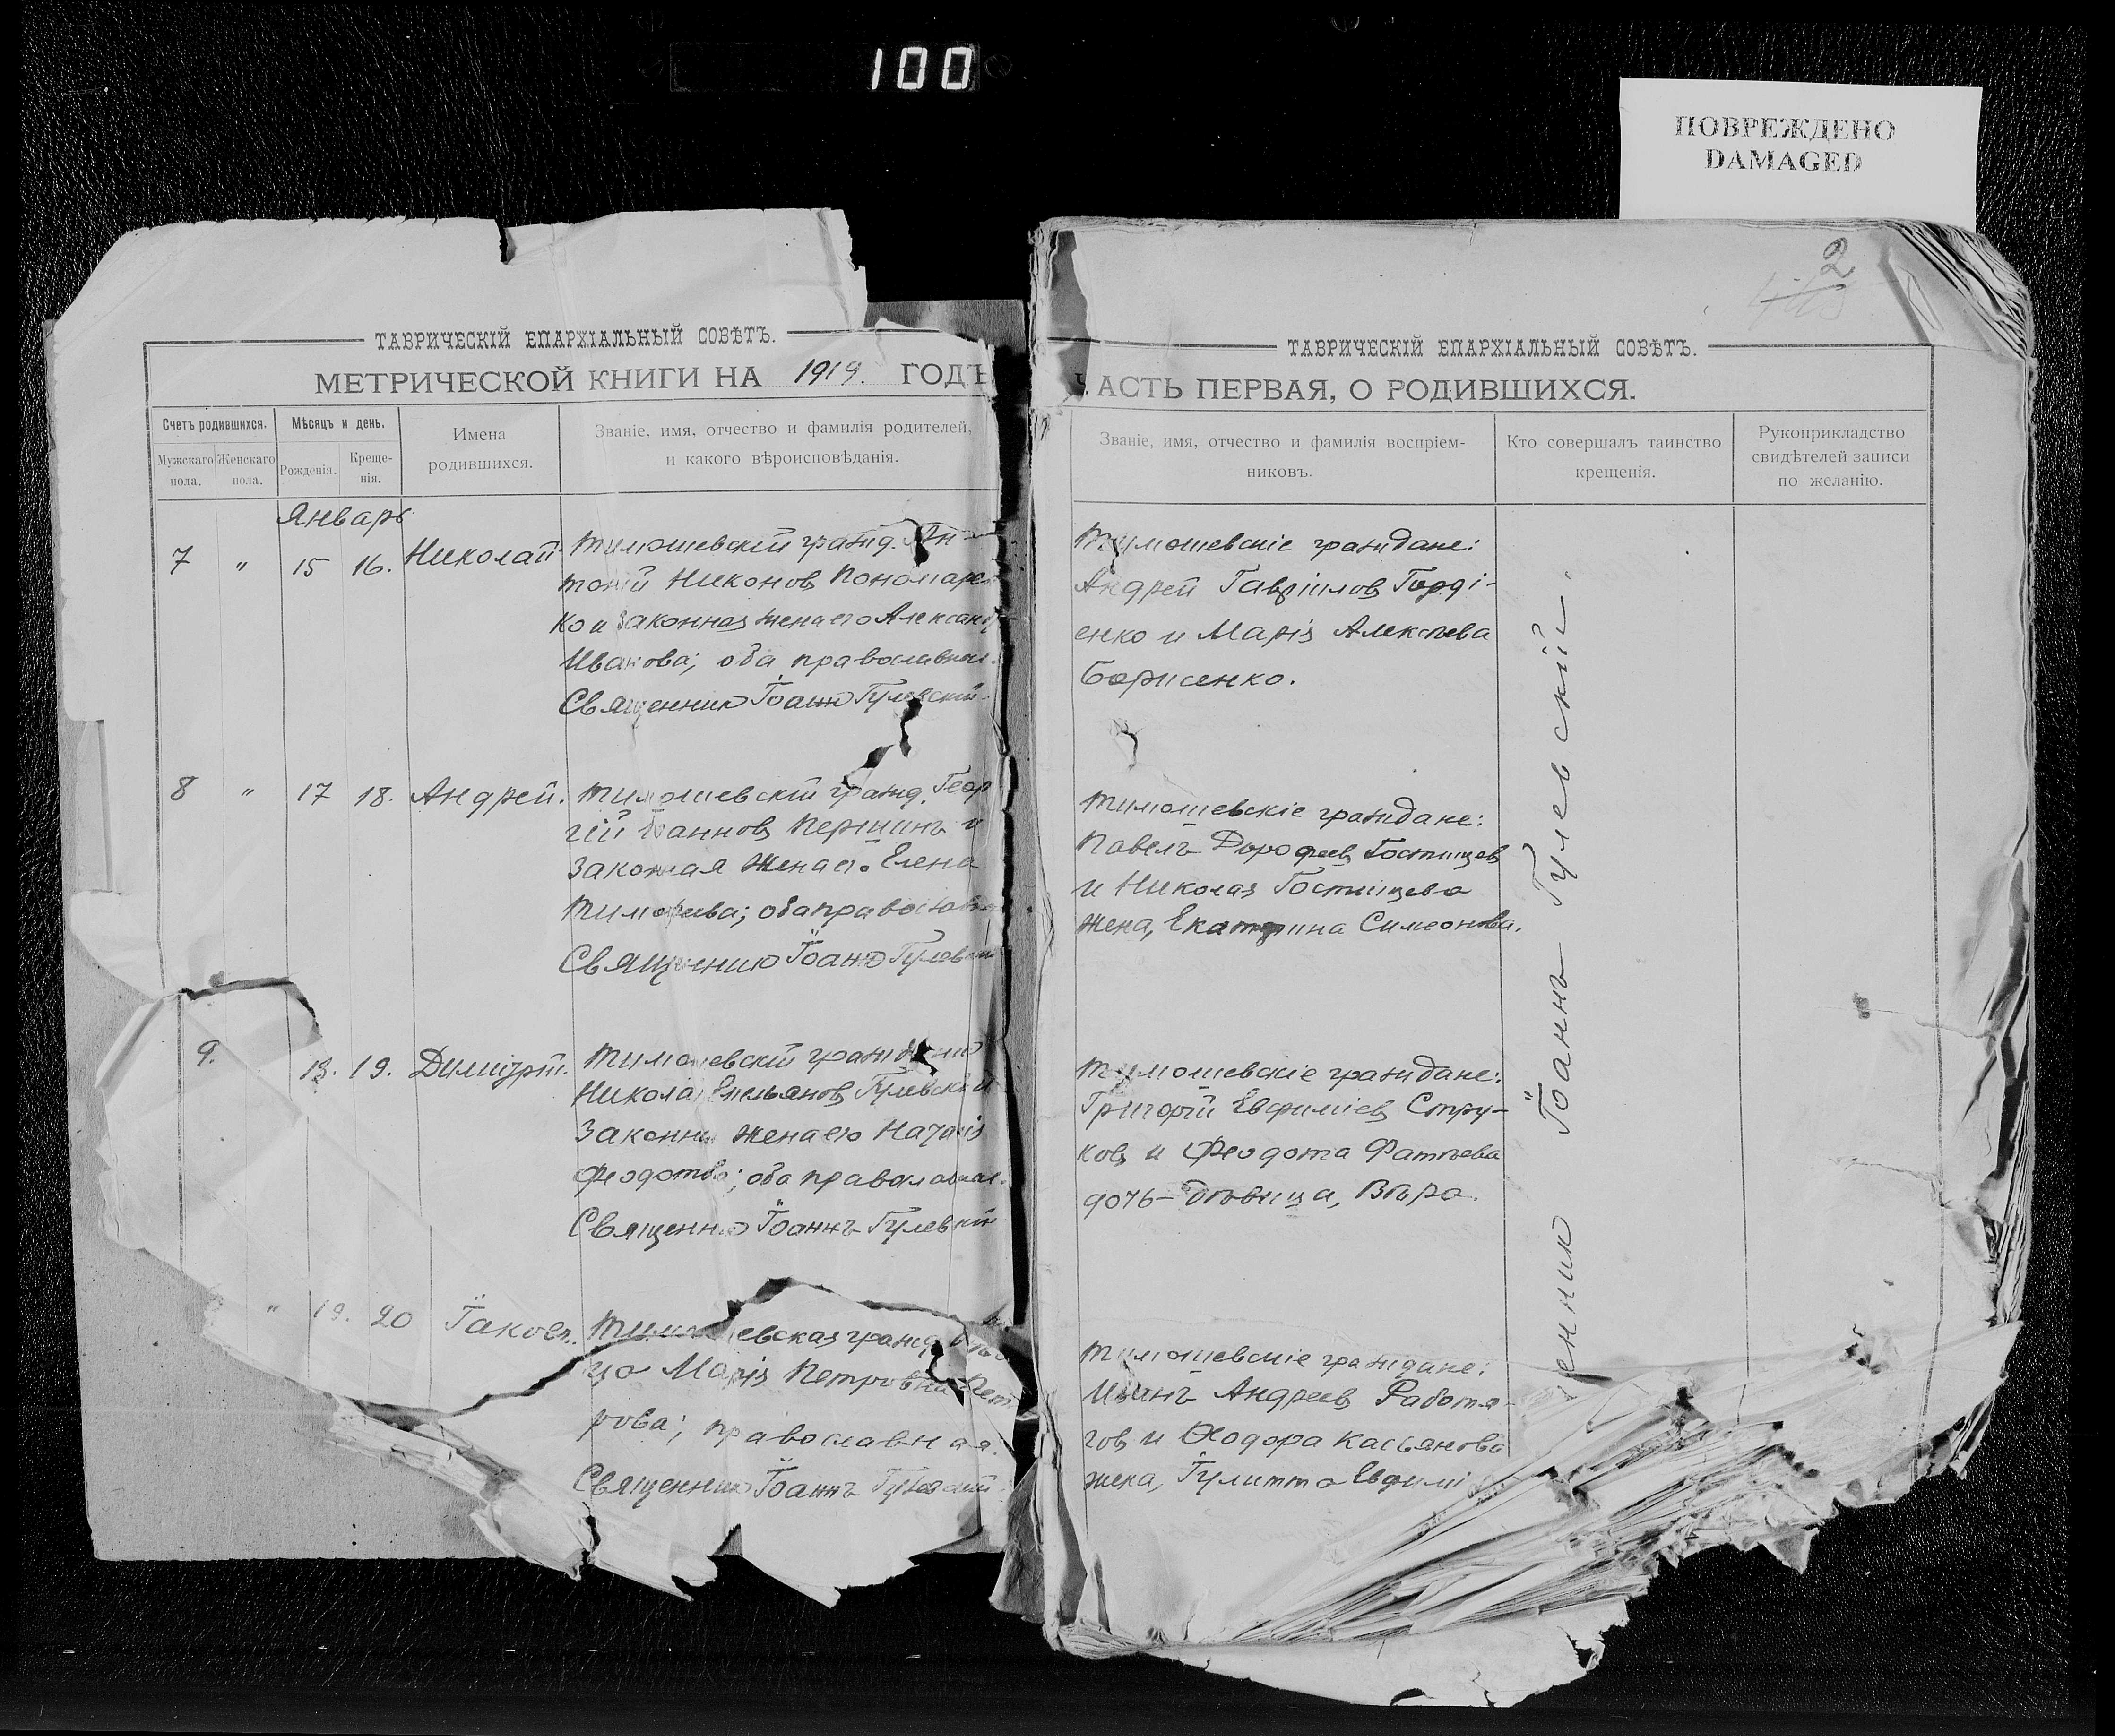 100
ПОВРЕЖДЕНО
DAMAGED
2
ТАВРИЧЕСКІЙ ЕПАРХІАЛЬНЫЙ СОВѢТЪ.
МЕТРИЧЕСКОЙ КНИГИ НА 1919. ГОДЪ
Счетъ родившихся.
Мѣсяцъ и день.
Имена родившихся.
Званіе, имя, отчество и фамилія родителей,
и какого вѣроисповѣданія.
Мужскаго пола.
Женскаго пола.
Рожденія.
Крещенія.
Январь
7 " 15 16. Николай
Тимошевскій гражд. Ан-
тоній Никоновъ Пономарен
ко и законная жена его Александ
Иванова; оба православные.
Священникъ Іоаннъ Гулевскій.
8 " 17 18. Андрей.
Тимошевскій гражд. Геор
гій Іоанновъ Першинъ и
законная жена его Елена
Тимофеева; оба православн
Священникъ Іоаннъ Гулевскій
9. 18. 19. Димитрій.
Тимошевскій гражданинъ
Николай Емельяновъ Гулевскій и
Законная жена его
Феодотова; оба православные.
Священникъ Іоаннъ Гулевскій
" 19. 20 Іаковъ.
Тимошевская гражд.
ца Марія Петровна Пет
рова; православная.
Священникъ Іоаннъ Гулевскій.
ТАВРИЧЕСКІЙ ЕПАРХІАЛЬНЫЙ СОВѢТЪ.
ЧАСТЬ ПЕРВАЯ, О РОДИВШИХСЯ.
Званіе, имя, отчество и фамилія воспріем-
никовъ.
Кто совершалъ таинство
крещенія.
Рукоприкладство
свидѣтелей записи
по желанію.
Тимошевскіе граждане:
Андрей Гавріиловъ Горді-
енко и Марія Алексѣева
Борисенко.
Тимошевскіе граждане:
Павелъ Дорофеевъ Гостищев
и Николая Гостищева
жена, Екатерина Симеонова.
Тимошевскіе граждане:
Григорій Евфиміевъ Стру-
ковъ и Феодота Фатѣева
дочь-дѣвица, Вѣра.
Тимошевскіе граждане:
Иванъ Андреевъ Работя-
говъ и Ѳеодора Касьянова
жена, Іулитта Евфимі
енникъ Іоаннъ Гулевскій.